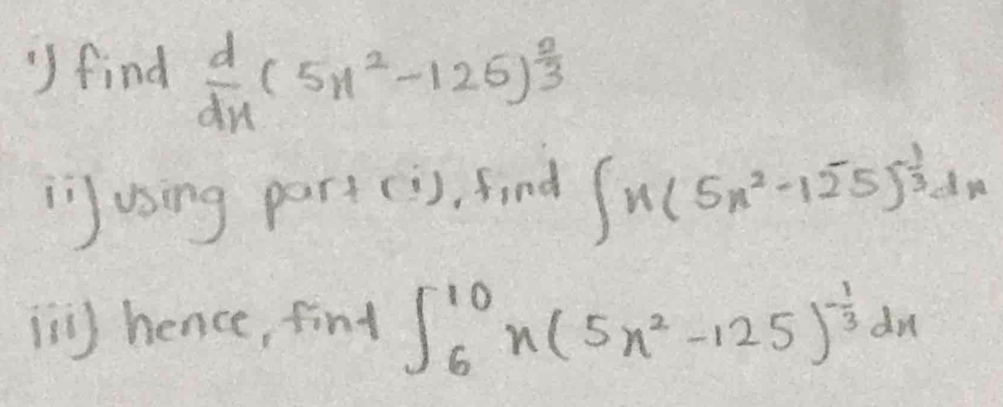 i) find d/dx (5x²-125)^(2/3)
ii) using part (i), find ∫x(5x²-125)^(-1/3) dx
iii) hence, find ∫₆¹⁰ x(5x²-125)^(-1/3) dx